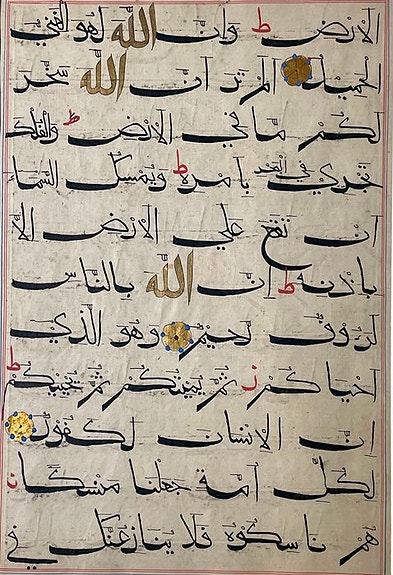 الارض ط وان الله لهو الغني
الحميد الم تر ان الله سخر
لكم ما في الارض ط والفلك
تجري في البحر بامره ط ويمسك السماء
ان تقع علي الارض الا
باذنه ط ان الله بالناس
لرؤوف رحيم وهو الذي
احياكم ز ثم يميتكم ثم يحييكم ط
ان الانسان لكفور
لكل امة جعلنا منسكا ن
هم ناسكوه فلا ينازعنك في